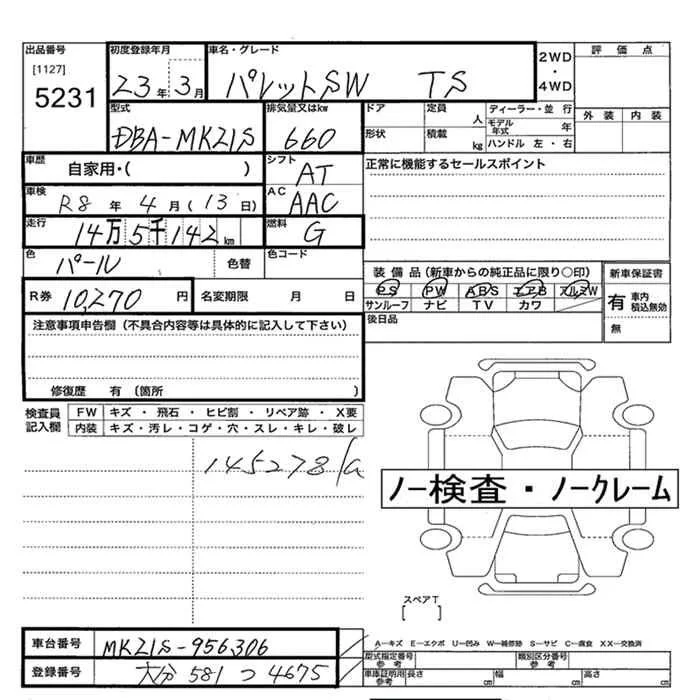 出品番号 初度登録年月 車名・グレード 2WD・4WD 評価点
[1127]
5231 23年 3月 パレットSW TS
型式 排気量又はkw ドア 定員 人 ディーラー・並行 外装 内装
DBA-MK21S 660 形状 積載 kg モデル年式 年
ハンドル 左・右
車歴 自家用・( ) シフト AT 正常に機能するセールスポイント
車検 R8年 4月 (13日) AC AAC
走行 14万5千142km 燃料 G
色 パール 色替 色コード
装備品(新車からの純正品に限り○印) 新車保証書
R券 10,270円 名変期限 月 日 PS PW ABS エアB アルミW 有 車内積込無効
サンルーフ ナビ TV カワ 無
注意事項申告欄 (不具合内容等は具体的に記入して下さい) 後日品
修復歴 有 (箇所 )
検査員記入欄 FW キズ・飛石・ヒビ割・リペア跡・X要
内装 キズ・汚レ・コゲ・穴・スレ・キレ・破レ
145278
ノー検査・ノークレーム
スペアT
[ ]
車台番号 MK21S-956306 A―キズ E―エクボ U―凹み W―補修跡 S―サビ C―腐食 XX―交換済
登録番号 大分 581 つ 4675 型式指定番号 参考 類別区分番号 参考
車庫証明用 参考 長さ cm 幅 cm 高さ cm